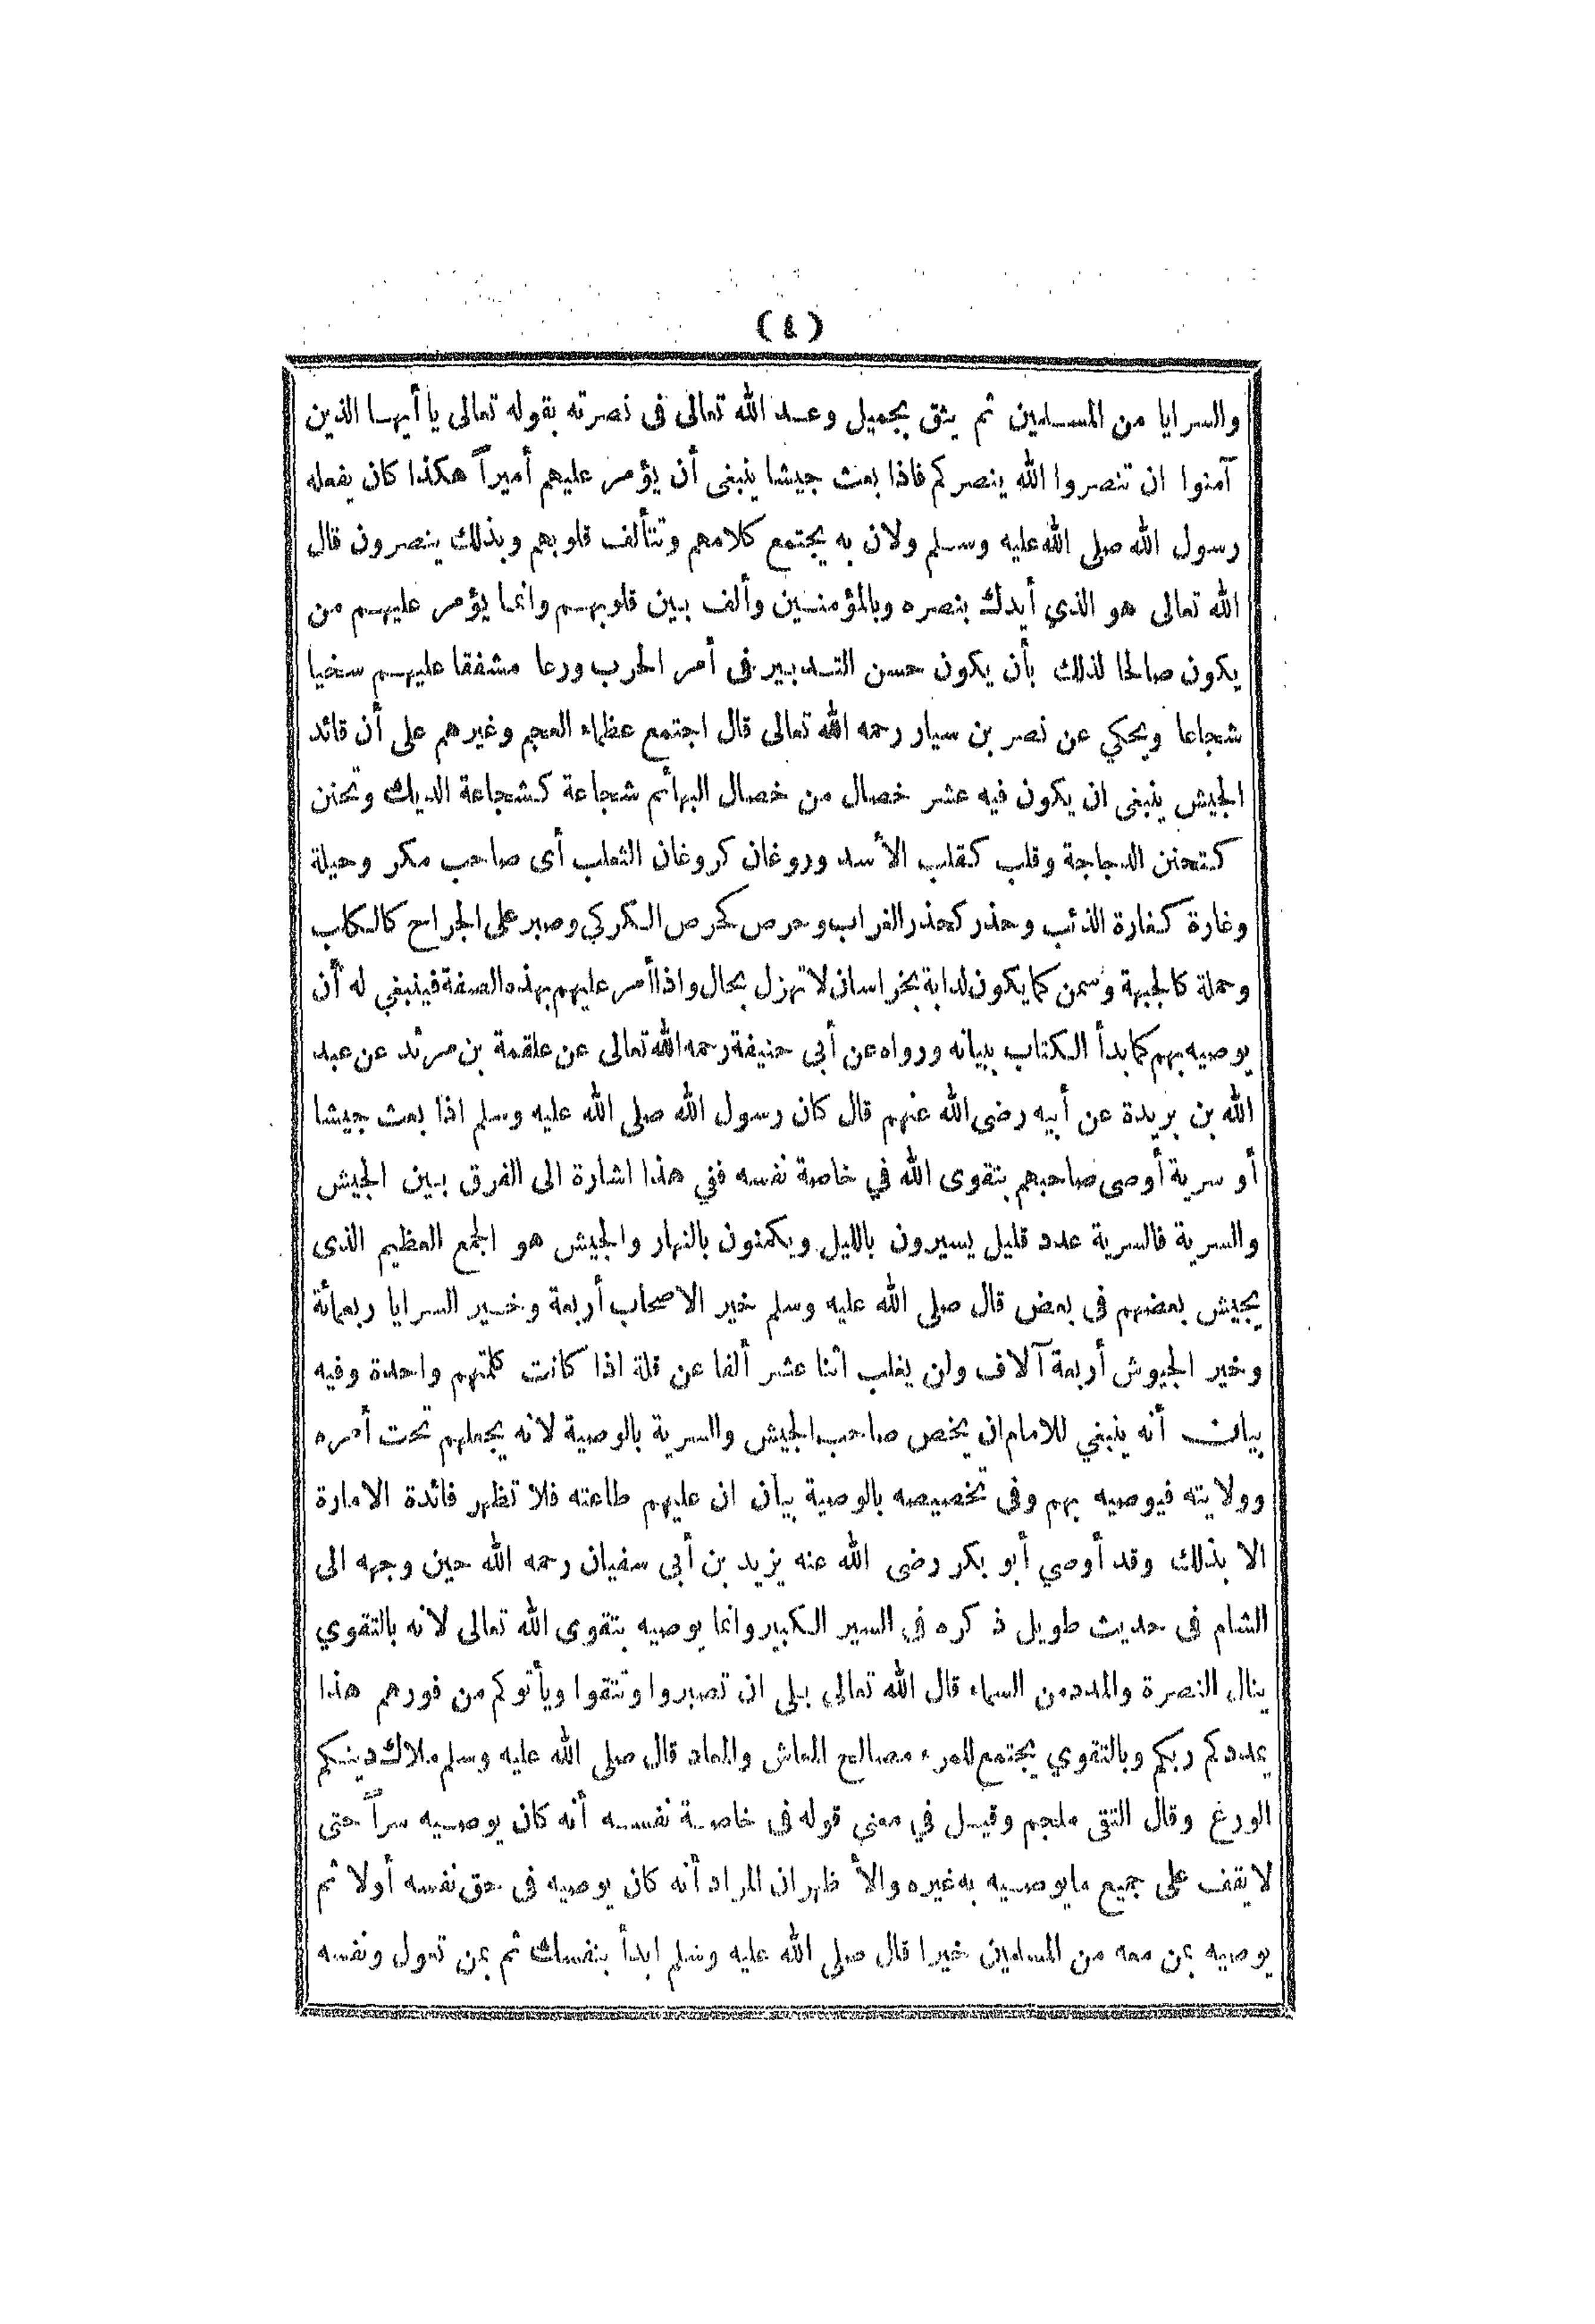 (٤)
والسرايا من المسلمين ثم يثق بجميل وعد الله تعالى فى نصرته بقوله تعالى يا أيها الذين
آمنوا ان تنصروا الله ينصركم فاذا بعث جيشا ينبغى أن يؤمر عليهم أميراً هكذا كان يفعله
رسول الله صلى الله عليه وسلم ولان به يجتمع كلامهم وتتألف قلوبهم وبذلك ينصرون قال
الله تعالى هو الذي أيدك بنصره وبالمؤمنين وألف بين قلوبهم وانما يؤمر عليهم من
يكون صالحا لذلك بأن يكون حسن التدبير فى أمر الحرب ورعا مشفقا عليهم سخيا
شجاعا ويحكي عن نصر بن سيار رحمه الله تعالى قال اجتمع عظماء العجم وغيرهم على أن قائد
الجيش ينبغى ان يكون فيه عشر خصال من خصال البهائم شجاعة كشجاعة الديك وتحنن
كتحنن الدجاجة وقلب كقلب الأسد وروغان كروغان الثعلب أى صاحب مكر وحيلة
وغارة كغارة الذئب وحذر كحذر الغراب وحرص كحرص الكركي وصبر على الجراح كالكلب
وحملة كالجبهة وسمن كما يكون لدابة بخراسان لا تهزل بحال واذا أمر عليهم بهذه الصفة فينبغي له أن
يوصيه بهم كما بدأ الكتاب ببيانه ورواه عن أبى حنيفة رحمه الله تعالى عن علقمة بن مرثد عن عبد
الله بن بريدة عن أبيه رضى الله عنهم قال كان رسول الله صلى الله عليه وسلم اذا بعث جيشا
أو سرية أوصى صاحبهم بتقوى الله في خاصة نفسه ففي هذا اشارة الى الفرق بين الجيش
والسرية فالسرية عدد قليل يسيرون بالليل ويكمنون بالنهار والجيش هو الجمع العظيم الذى
يجيش بعضهم فى بعض قال صلى الله عليه وسلم خير الاصحاب أربعة وخير السرايا ربعمائة
وخير الجيوش أربعة آلاف ولن يغلب اثنا عشر ألفا عن قلة اذا كانت كلمتهم واحدة وفيه
بيان أنه ينبغي للامام ان يخص صاحب الجيش والسرية بالوصية لانه يجعلهم تحت أمره
وولايته فيوصيه بهم وفى تخصيصه بالوصية بيان ان عليهم طاعته فلا تظهر فائدة الامارة
الا بذلك وقد أوصي أبو بكر رضى الله عنه يزيد بن أبى سفيان رحمه الله حين وجهه الى
الشام فى حديث طويل ذكره في السير الكبير وانما يوصيه بتقوى الله تعالى لانه بالتقوي
ينال النصرة والمدد من السماء قال الله تعالى بلى ان تصبروا وتتقوا ويأتوكم من فورهم هذا
يمددكم ربكم وبالتقوي يجتمع للمرء مصالح المعاش والمعاد قال صلى الله عليه وسلم ملاك دينكم
الورغ وقال التقى ملجم وقيل في معنى قوله فى خاصة نفسه أنه كان يوصيه سراً حتى
لا يقف على جميع ما يوصيه به غيره والأظهر ان المراد أنه كان يوصيه فى حق نفسه أولا ثم
يوصيه بمن معه من المسلمين خيرا قال صلى الله عليه وسلم ابدأ بنفسك ثم بمن تعول ونفسه